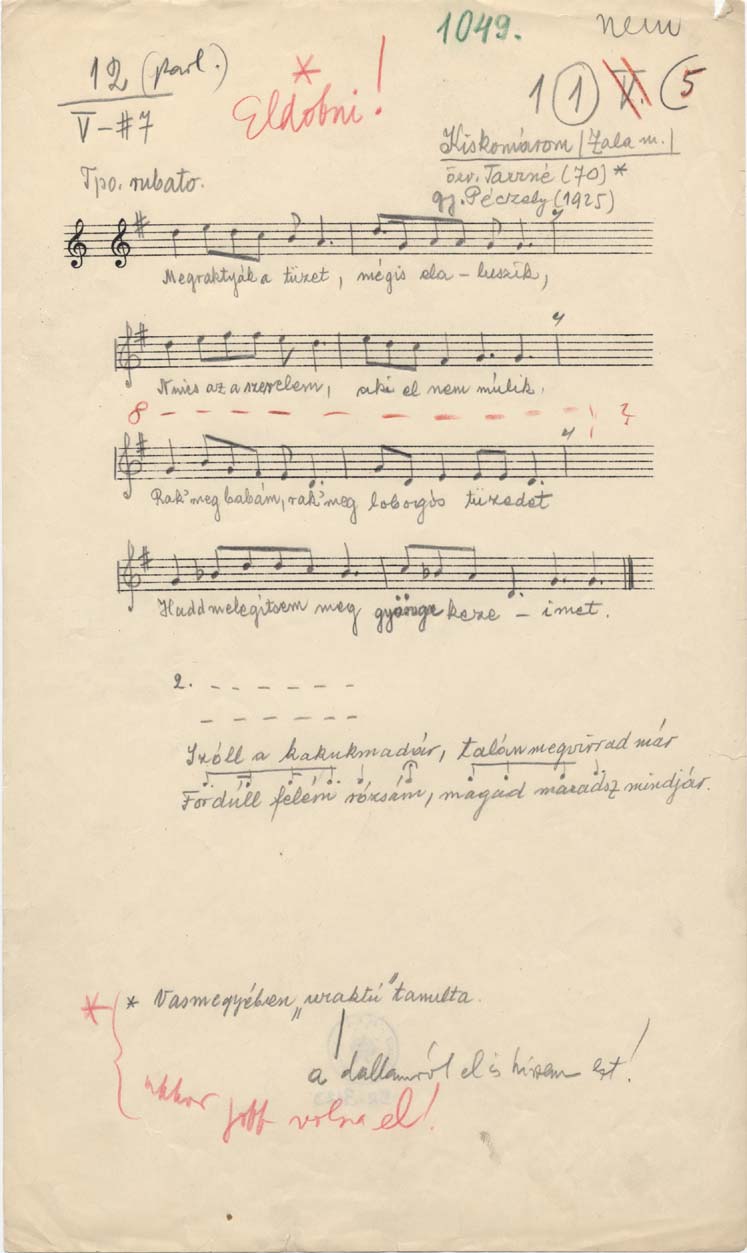 1049. nem
12 (parl.)
V-#7
* Eldobni!
1 (1) V. (5
Kiskomárom /Zala m./
özv. Tarrné (70) *
gy. Péczely (1925)
Tpo. rubato.
Megraktyák a tüzet, mégis ela-luszik,
Nincs az a szerelem, aki el nem múlik.
8 ?
Rak' meg babám, rak' meg lobogós tüzedet
Hadd melegitsem meg gyönge keze-imet.
2. - - - - - -
- - - - - -
Szóll a kakukmadár, talán megvirrad már
Fordúll felém rózsám, magad maradsz mindjár.
* * Vasmegyében „uraktú" tanulta.
a dallamról el is hiszem ezt!
akkor jobb volna el!